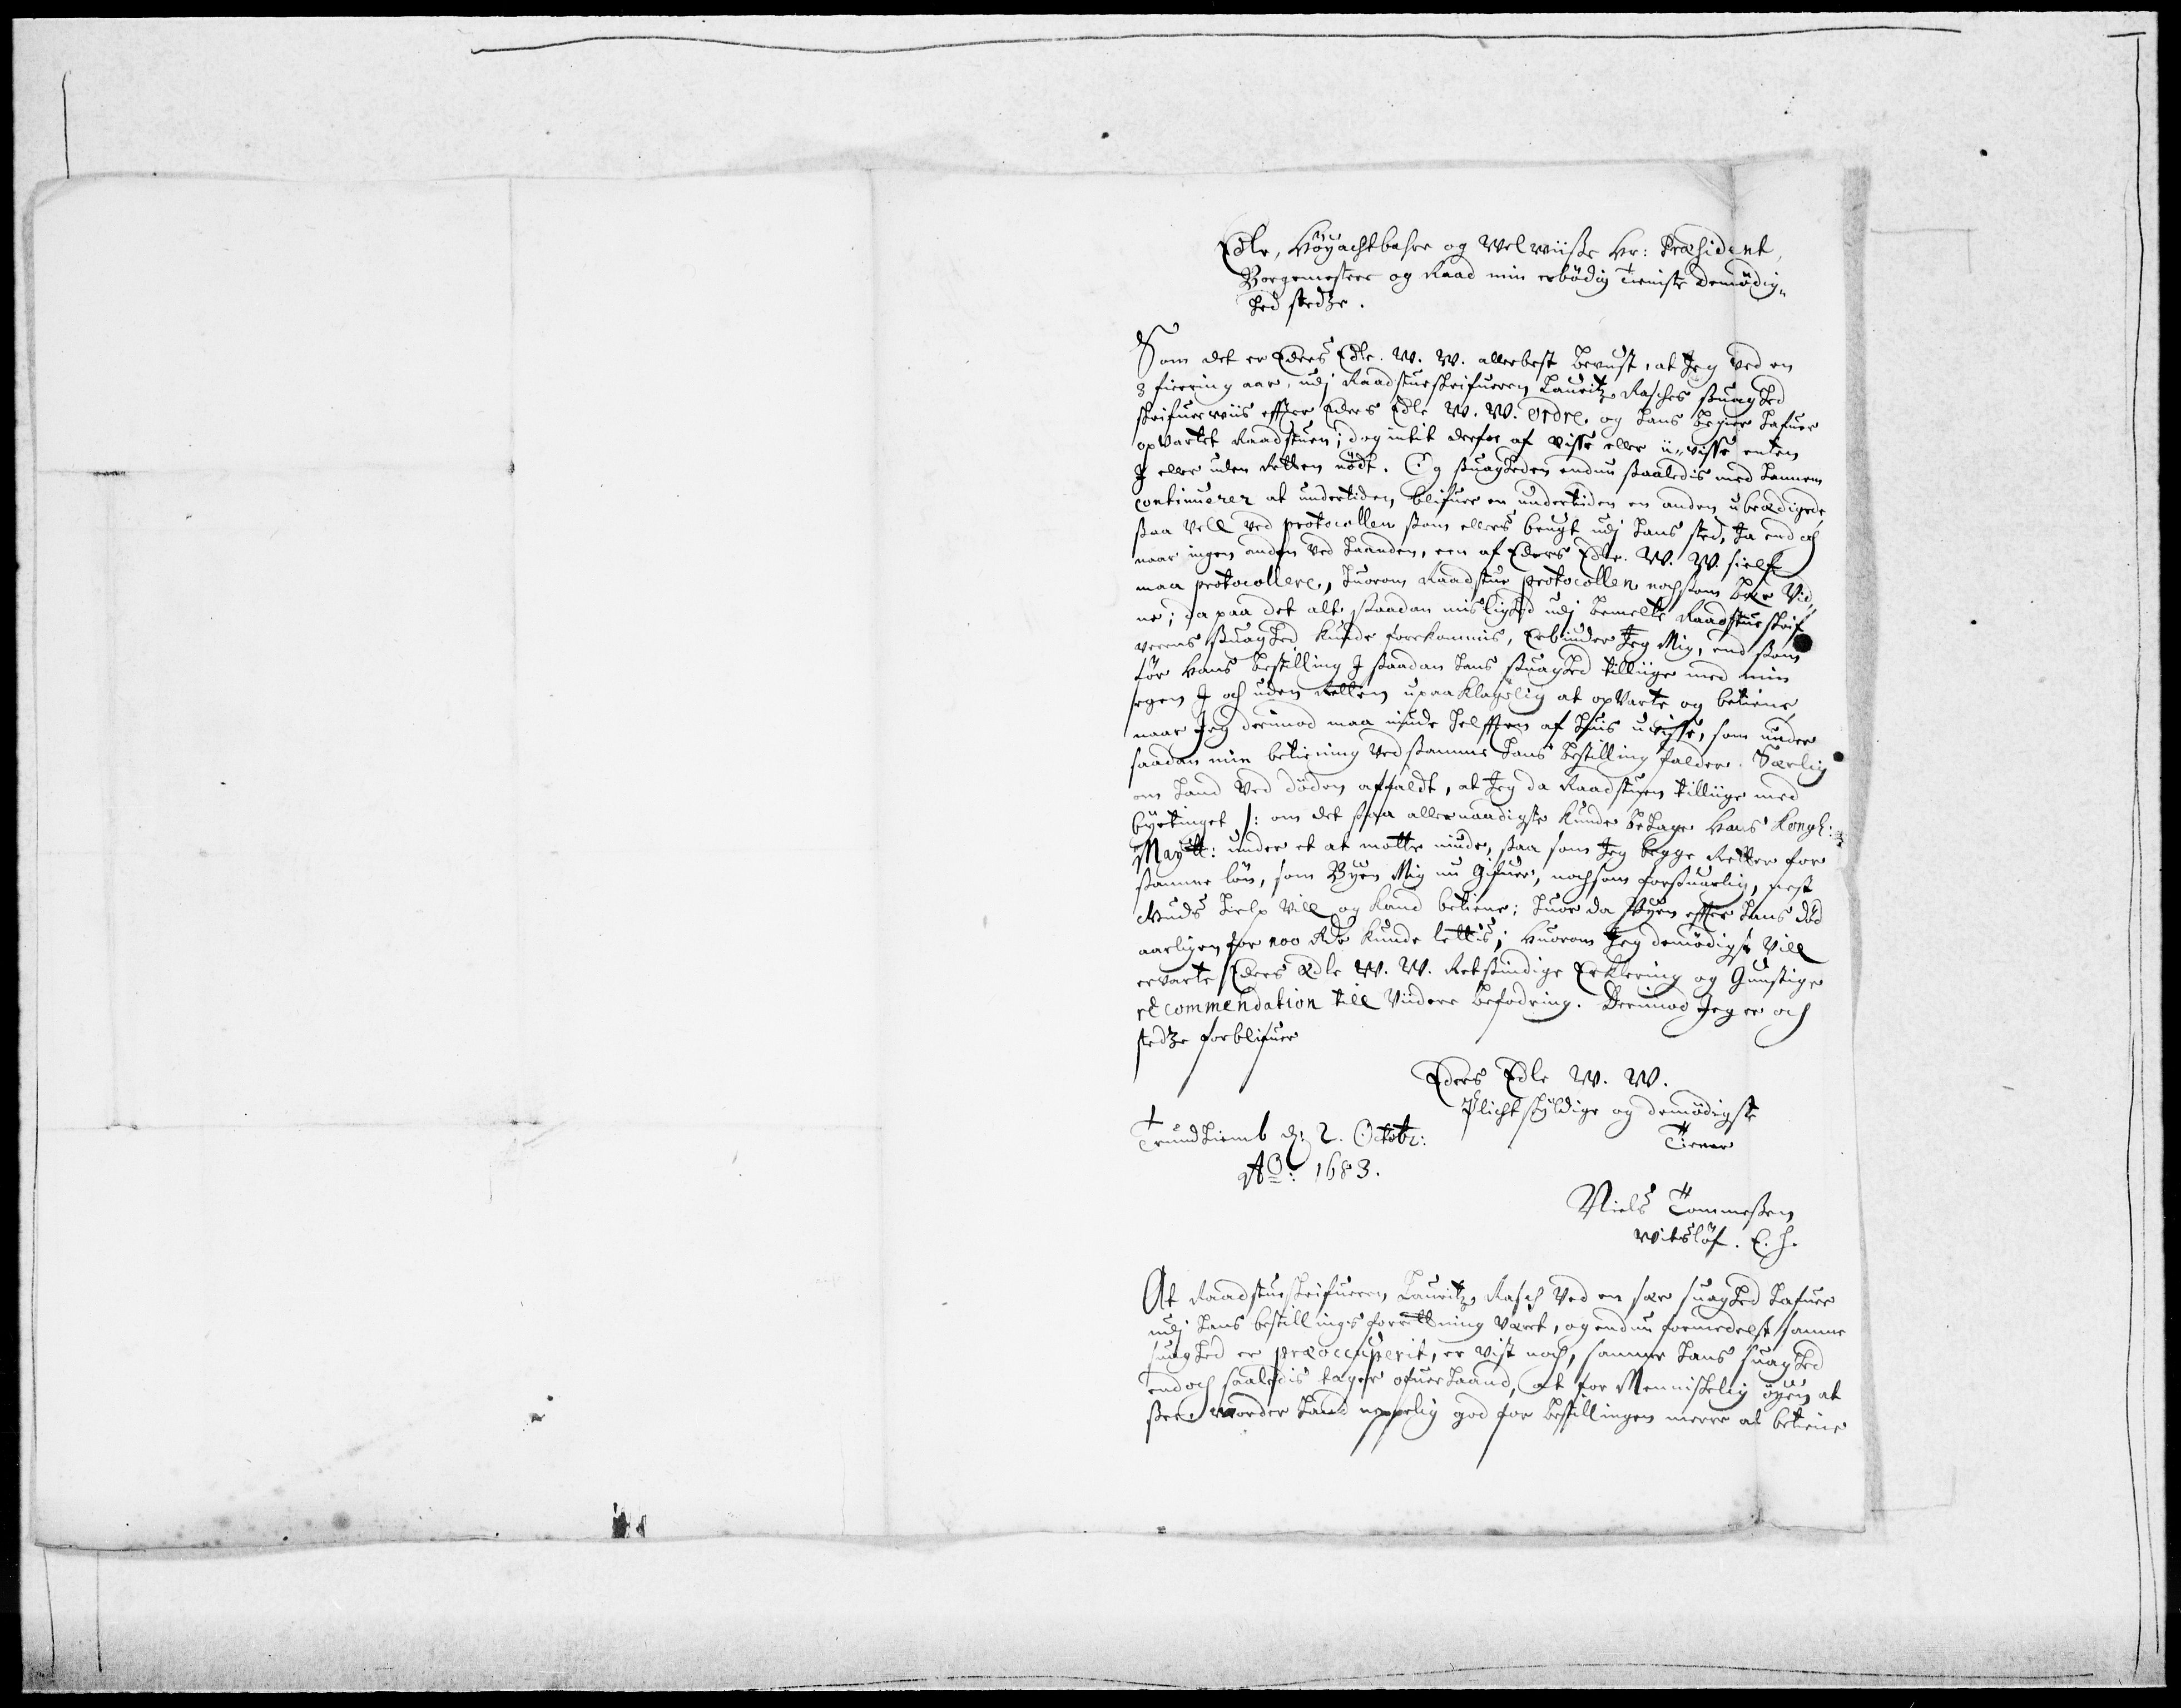 Edle, Höyachtbahre og Velwiiße Hr: Præsident,
Borgemestere og Raad min erbödig Tieniste Demödig„
hed stedze.
Som det er Eders Edle. W. W. allerbest bevust, at Jeg ved en
3 fiering aar, udj Raadstueskrifueren Lauritz Rasches suaghed
skrifuerviis effter Eders Edle W. W. ordre, og hans begier hafuer
opvartet Raadstuen; dog intit derfor af visse eller u„visse enten
J eller uden Retten nödt. Og suagheden endnu saaledis med hannem
continuerer at undertiden blifuer en undertiden en anden ubeædigede
saa vell ved protocollen som ellers brugt udj hans sted, Ja end och
naar ingen anden ved haanden, een af Eders Edle. W. W. sielf
maa protocollere, huorom Raadstue protocollen nochsom bær vid„
ne; da paa det alt saadan misslighed udj bemelte Raadstueskrif
verens suaghed kunde forekommis, Erbiuder Jeg Mig, end som
för Hans bestilling J saadan hans suaghed tillige med min
egen J och uden Retten upaaklagelig at opvarte og betiene,
naar Jeg derimod maa niude helfften af huis uvisse, som under
saadan min betiening ved samme hans bestilling falder. Særlig
om hand ved döden affaldt, at Jeg da Raadstuen tillige med
byetinget /: om det saa allernaadigste kunde behage Hans Kongl:
Maytt: under et at motte niude, saa som Jeg begge Retter for
samme lön, som Byen Mig nu gifuer, nochsom forsuarlig, nest
Guds hielp vill og kand betiene; huor da Byen effter hans död
aarligen for 100 Rdr kunde lettis; Huorom Jeg demödigst vill
ervarte Eders Edle W. W. Retsindige Erklering og Gunstige
recommendation till viidere befodring. Derimod Jeg er och
stedze forblifuer
Eders Edle W. W.
Plichtskyldige og demödigste
Tiener
Trundhiemb d: 2. Octobr:
Ao: 1683.
Niels Tommeßen
Witslöf. E. h.
At Raadstueskrifueren Lauritz Rasch ved en svær suaghed hafuer
udj hans bestillings forrettning været, og endnu formedelst samme
suaghed er præoccuperit, er vist noch, samme hans suaghed
endoch saaledis tager ofuerhaand, at for Menniskelig öyen at
see, vorder hand neppelig god for bestillingen meere at betiene